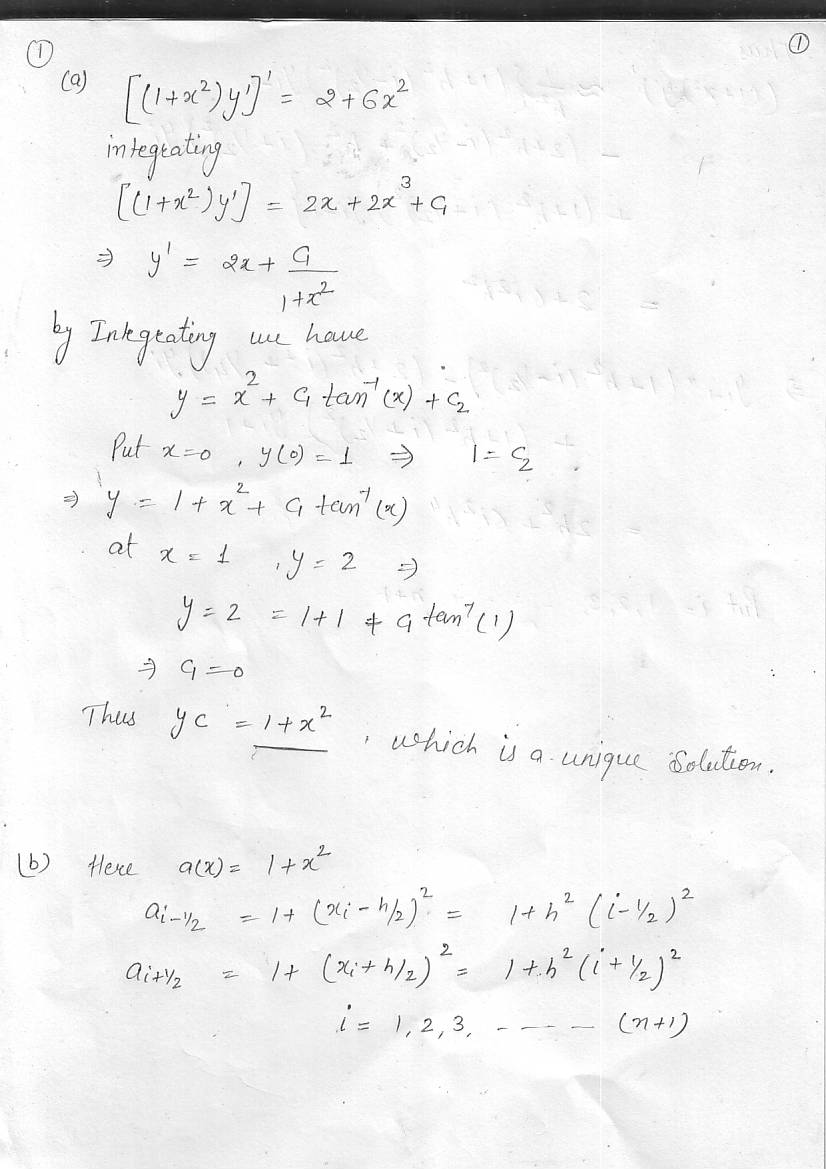 ① ①
(a) [(1+x²)y']' = 2+6x²
integrating
[(1+x²)y'] = 2x + 2x³ + C₁
⇒ y' = 2x + C₁/(1+x²)
by Integrating we have
y = x² + C₁ tan⁻¹(x) + C₂
Put x=0, y(0)=1 ⇒ 1 = C₂
⇒ y = 1 + x² + C₁ tan⁻¹(x)
at x = 1, y = 2 ⇒
y = 2 = 1+1 + C₁ tan⁻¹(1)
⇒ C₁ = 0
Thus yc = 1+x², which is a unique Solution.
(b) Here a(x) = 1+x²
aᵢ₋½ = 1+(xᵢ-h/2)² = 1+h²(i-½)²
aᵢ₊½ = 1+(xᵢ+h/2)² = 1+h²(i+½)²
i = 1, 2, 3, ---- (n+1)